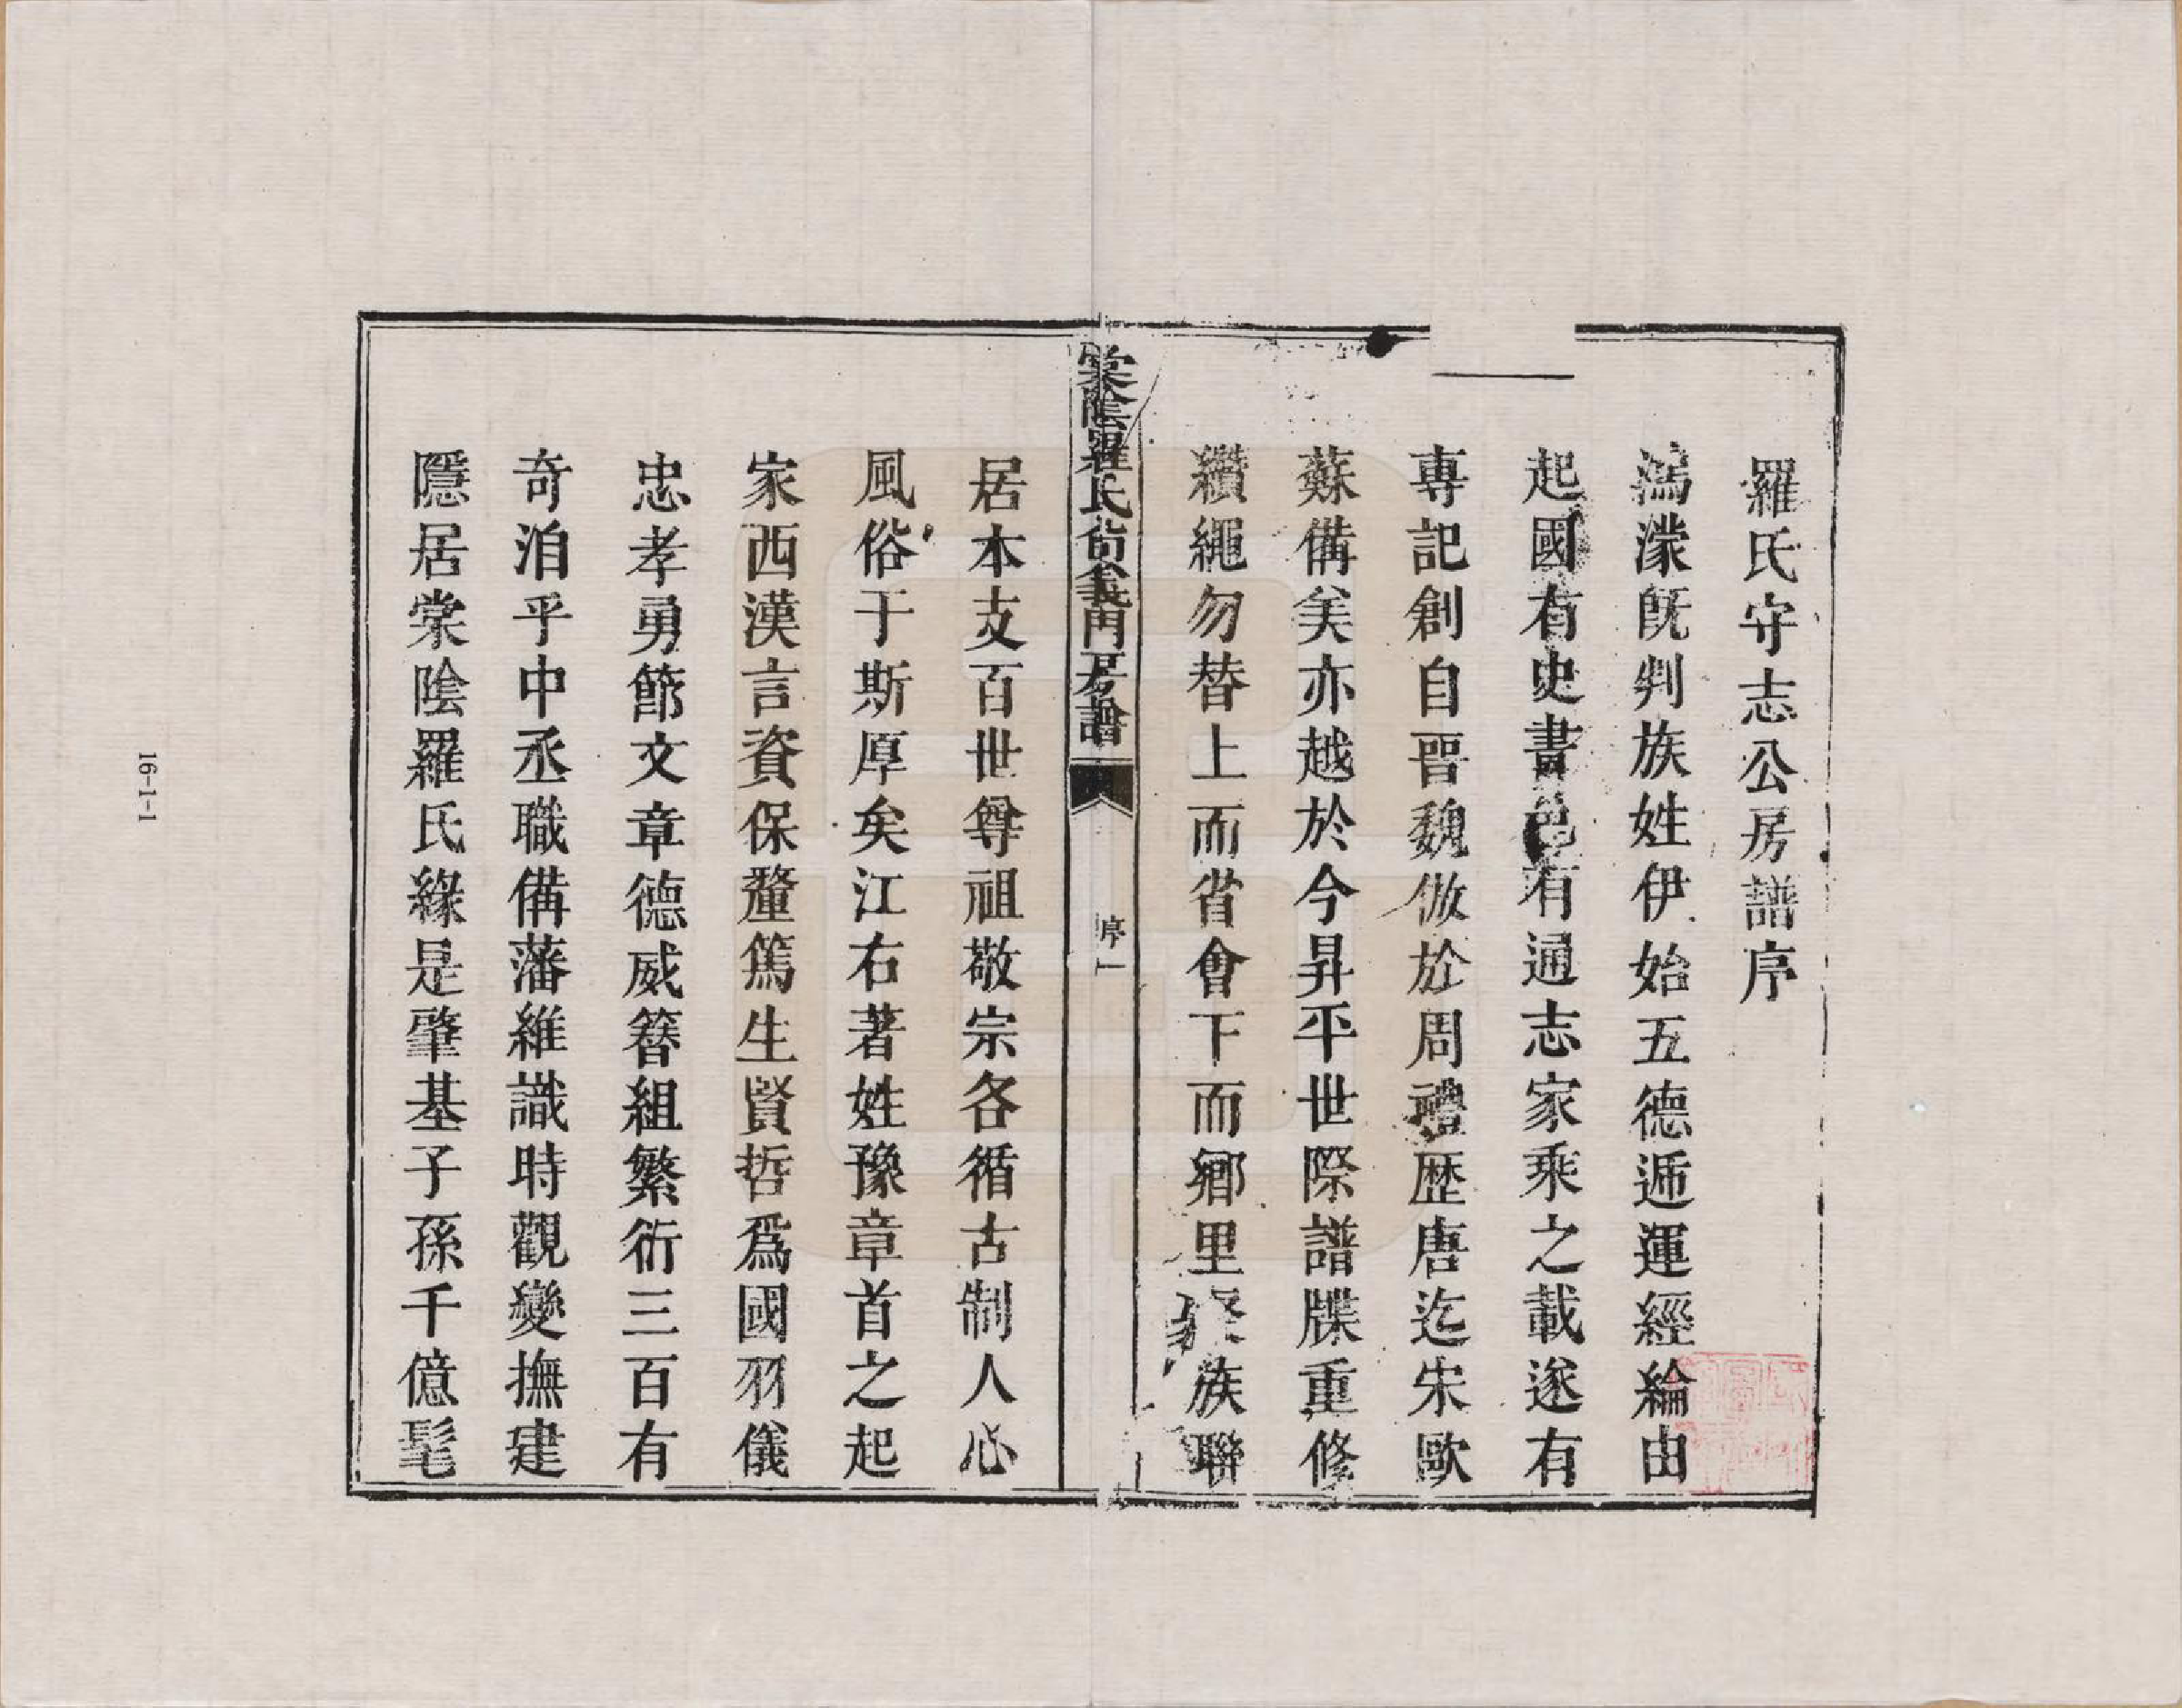 羅氏守志公房譜序
鴻濛旣判族姓伊始五德遞運經綸由
起國有史書邑有通志家乘之載遂有
專記創自晋魏倣於周禮歴唐迄宋歐
蘇備矣亦越於今昇平世際譜牒重修
纘繩勿替上而省會下而鄉里聚族聯
棠陰羅氏貨義門房譜
序
一
居本支百世尊祖敬宗各循古制人心
風俗于斯厚矣江右著姓豫章首之起
家西漢言資保釐篤生賢哲爲國羽儀
忠孝勇節文章德威簪組繁衍三百有
奇洎乎中丞職備藩維識時觀變撫建
隱居棠陰羅氏緣是肇基子孫千億髦
16-1-1